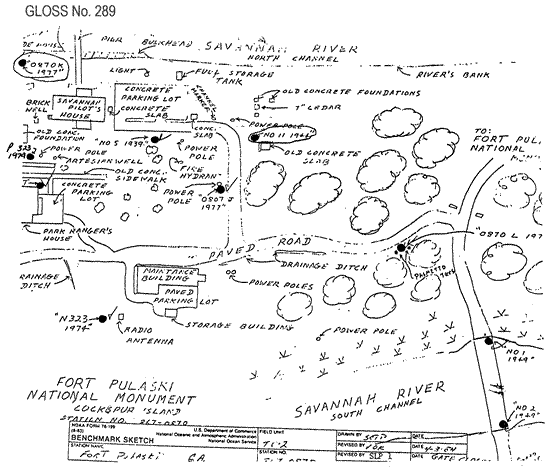 GLOSS No. 289
PIER
BULKHEAD
SAVANNAH RIVER
NORTH CHANNEL
"0870 K
1977"
LIGHT
FUEL STORAGE
TANK
RIVER'S BANK
BRICK
WELL
SAVANNAH
PILOT'S
HOUSE
CONCRETE
PARKING LOT
CONCRETE
SLAB
OLD CONCRETE FOUNDATIONS
7" CEDAR
OLD CONC.
FOUNDATION
NO 5 1939"
CONC.
SLAB
POWER POLE
NO 11 1946
TO:
FORT PUL
NATIONAL
P 323
1974
POWER
POLE
ARTESIAN WELL
POWER
POLE
OLD CONCRETE
SLAB
OLD CONC.
SIDEWALK
FIRE
HYDRANT
CONCRETE
PARKING
LOT
POWER
POLE
"0807 J
1977"
PARK RANGER'S
HOUSE
PAVED ROAD
"0870 L 197
DRAINAGE
DITCH
MAINTANCE
BUILDING
PAVED
PARKING LOT
DRAINAGE DITCH
PALMETTO
TREE
POWER POLES
"N323
1974"
RADIO
ANTENNA
STORAGE BUILDING
POWER POLE
NO 1
1949"
FORT PULASKI
NATIONAL MONUMENT
COCKSPUR ISLAND
STATION NO. 867-0870
SAVANNAH RIVER
SOUTH CHANNEL
NO 2
1949"
NOAA FORM 76-199
BENCHMARK SKETCH
U.S. Department of Commerce
National Oceanic and Atmospheric Administration
National Ocean Service
FIELD UNIT
DRAWN BY
DATE
REVISED BY
DATE
STATION NAME
FORT PULASKI GA
REVISED BY SLP
DATE